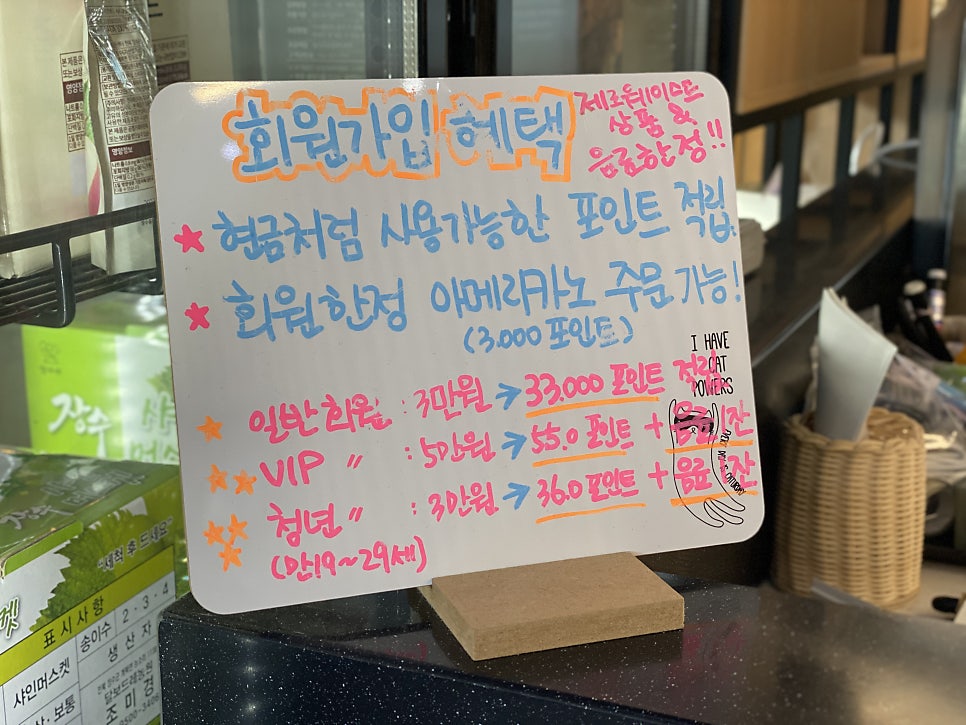 회원가입 혜택
제로웨이스트
상품 &
음료한정!!
★ 현금처럼 사용가능한 포인트 적립.
★ 회원한정 아메리카노 주문 가능!
(3.000 포인트)
I HAVE
CAT
POWERS
★ 일반회원 : 3만원 → 33.000 포인트 적립
★★ VIP 〃 : 5만원 → 55.0 포인트 + 음료 1잔
★★★ 청년 〃 : 3만원 → 36.0 포인트 + 음료 1잔
(만19~29세)
영양정보
장수
"세척 후 드세요"
표시사항
송이수 2-3-4
샤인머스켓
생산자
보통
조미경